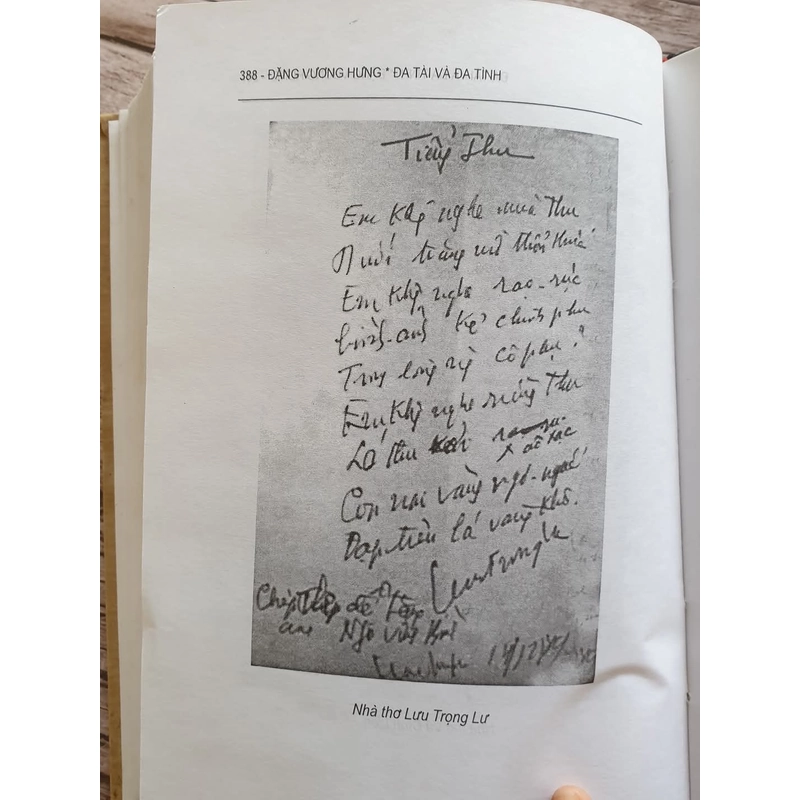 388 - ĐẶNG VƯƠNG HƯNG * ĐA TÀI VÀ ĐA TÌNH
Tiếng Thu
Em không nghe mùa Thu
Dưới trăng mờ thổn thức
Em không nghe rạo-rực
hình-ảnh kẻ chinh phu
Trong lòng người cô phụ?
Em không nghe rừng Thu
Lá thu kêu xào xạc
Con nai vàng ngơ-ngác
Đạp trên lá vàng khô.
Lưu trọng Lư
Chép để tặng
anh Ngô
Nhà thơ Lưu Trọng Lư